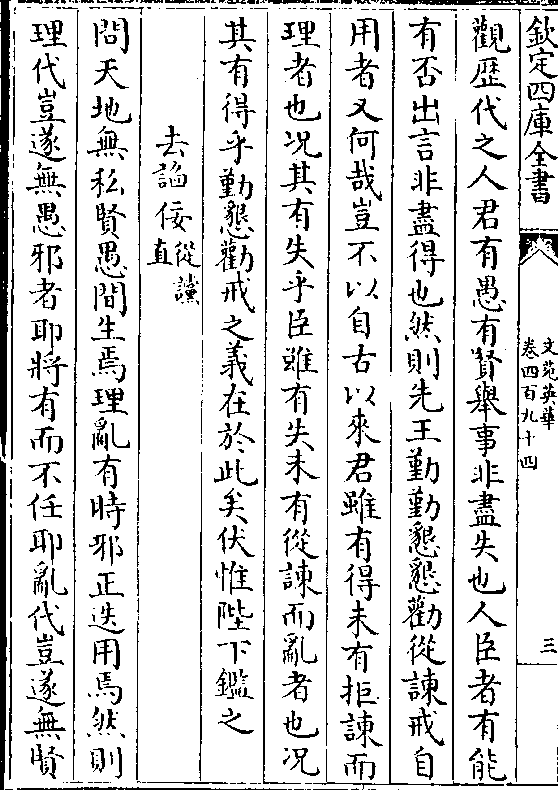 欽定四庫全書
文苑英華
卷四百九十四
三
觀歴代之人君有愚有賢舉事非盡失也人臣者有能
有否出言非盡得也然則先王勤勤懇懇勸從諫戒自
用者又何哉豈不以自古以來君雖有得未有拒諫而
理者也况其有失乎臣雖有失未有從諫而亂者也况
其有得乎勤懇勸戒之義在於此矣伏惟陛下鑑之
去諂佞從讜直
問天地無私賢愚間生焉理亂有時邪正迭用焉然則
理代豈遂無愚邪者耶將有而不任耶亂代豈遂無賢